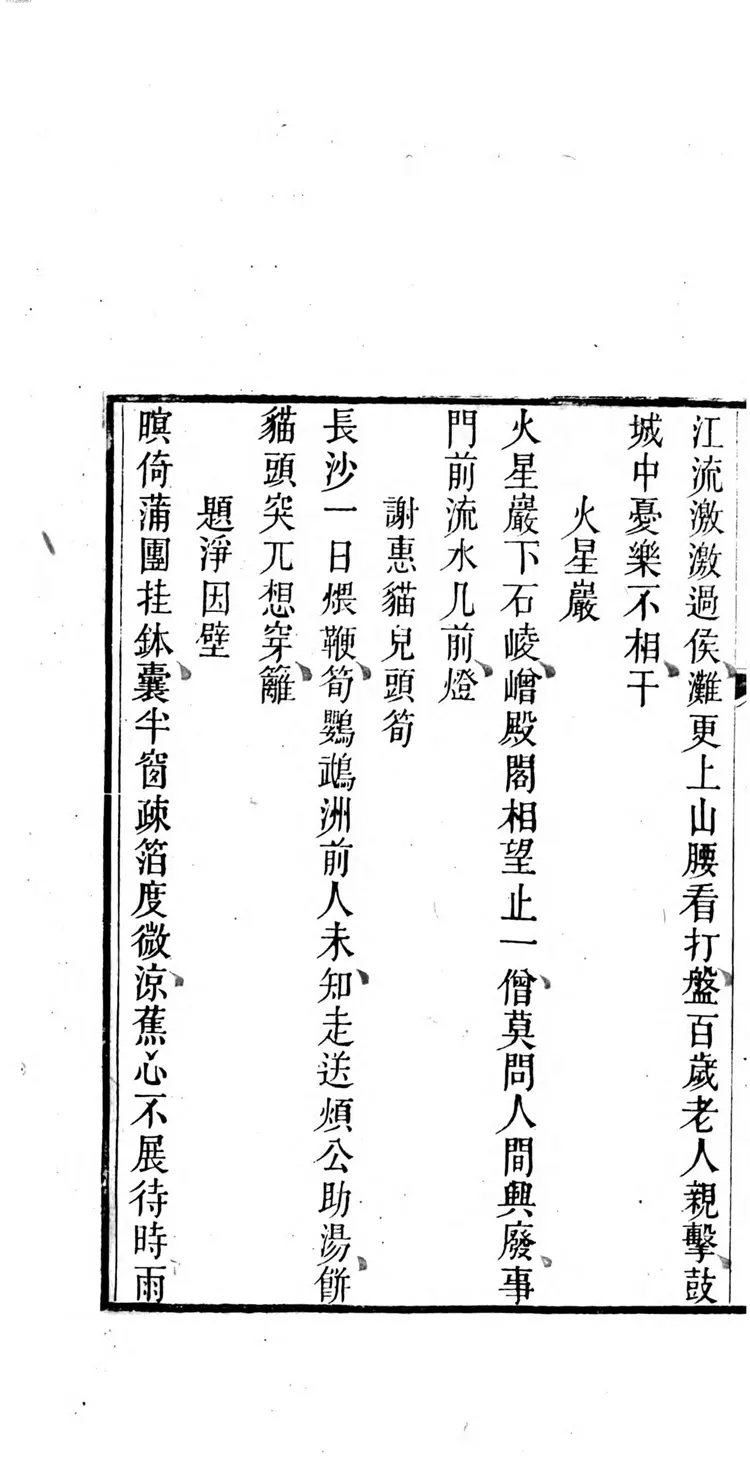 江流激激過侯灘更上山腰看打盤百歲老人親擊鼓
城中憂樂不相干
火星巖
火星巖下石崚嶒殿閣相望止一僧莫問人間興廢事
門前流水几前燈
謝惠貓兒頭筍
長沙一日煨鞭筍鸚鵡洲前人未知走送煩公助湯餅
貓頭突兀想穿籬
題淨因壁
暝倚蒲團挂鉢囊半窗疎箔度微涼蕉心不展待時雨